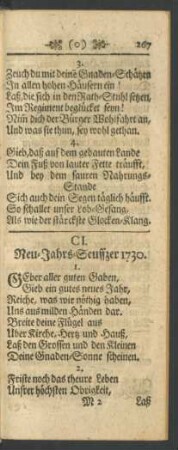 (o) 267
3.
Zeuch du mit deine Gnaden-Schätzen
In allen hohen Häusern ein!
Laß, die sich in den Rath-Stuhl setzen,
Im Regiment beglücket seyn!
Nim dich der Bürger Wohlfahrt an,
Und was sie thun, sey wohl gethan.
4.
Gieb, daß auf dem gebauten Lande
Dein Fuß von lauter Fette träufft,
Und bey dem sauren Nahrungs-
Stande
Sich auch dein Segen täglich häufft.
So schallet unser Lob-Gesang,
Als wie der stärckste Glocken-Klang.
CI.
Neu-Jahrs-Seuffzer 1730.
1.
GEber aller guten Gaben,
Gieb ein gutes neues Jahr,
Reiche, was wir nöthig haben,
Uns aus milden Händen dar.
Breite deine Flügel aus
Uber Kirche, Hertz und Hauß,
Laß den Grossen und den Kleinen
Deine Gnaden-Sonne scheinen.
2.
Friste noch das theure Leben
Unsrer höchsten Obrigkeit,
M 2 Laß